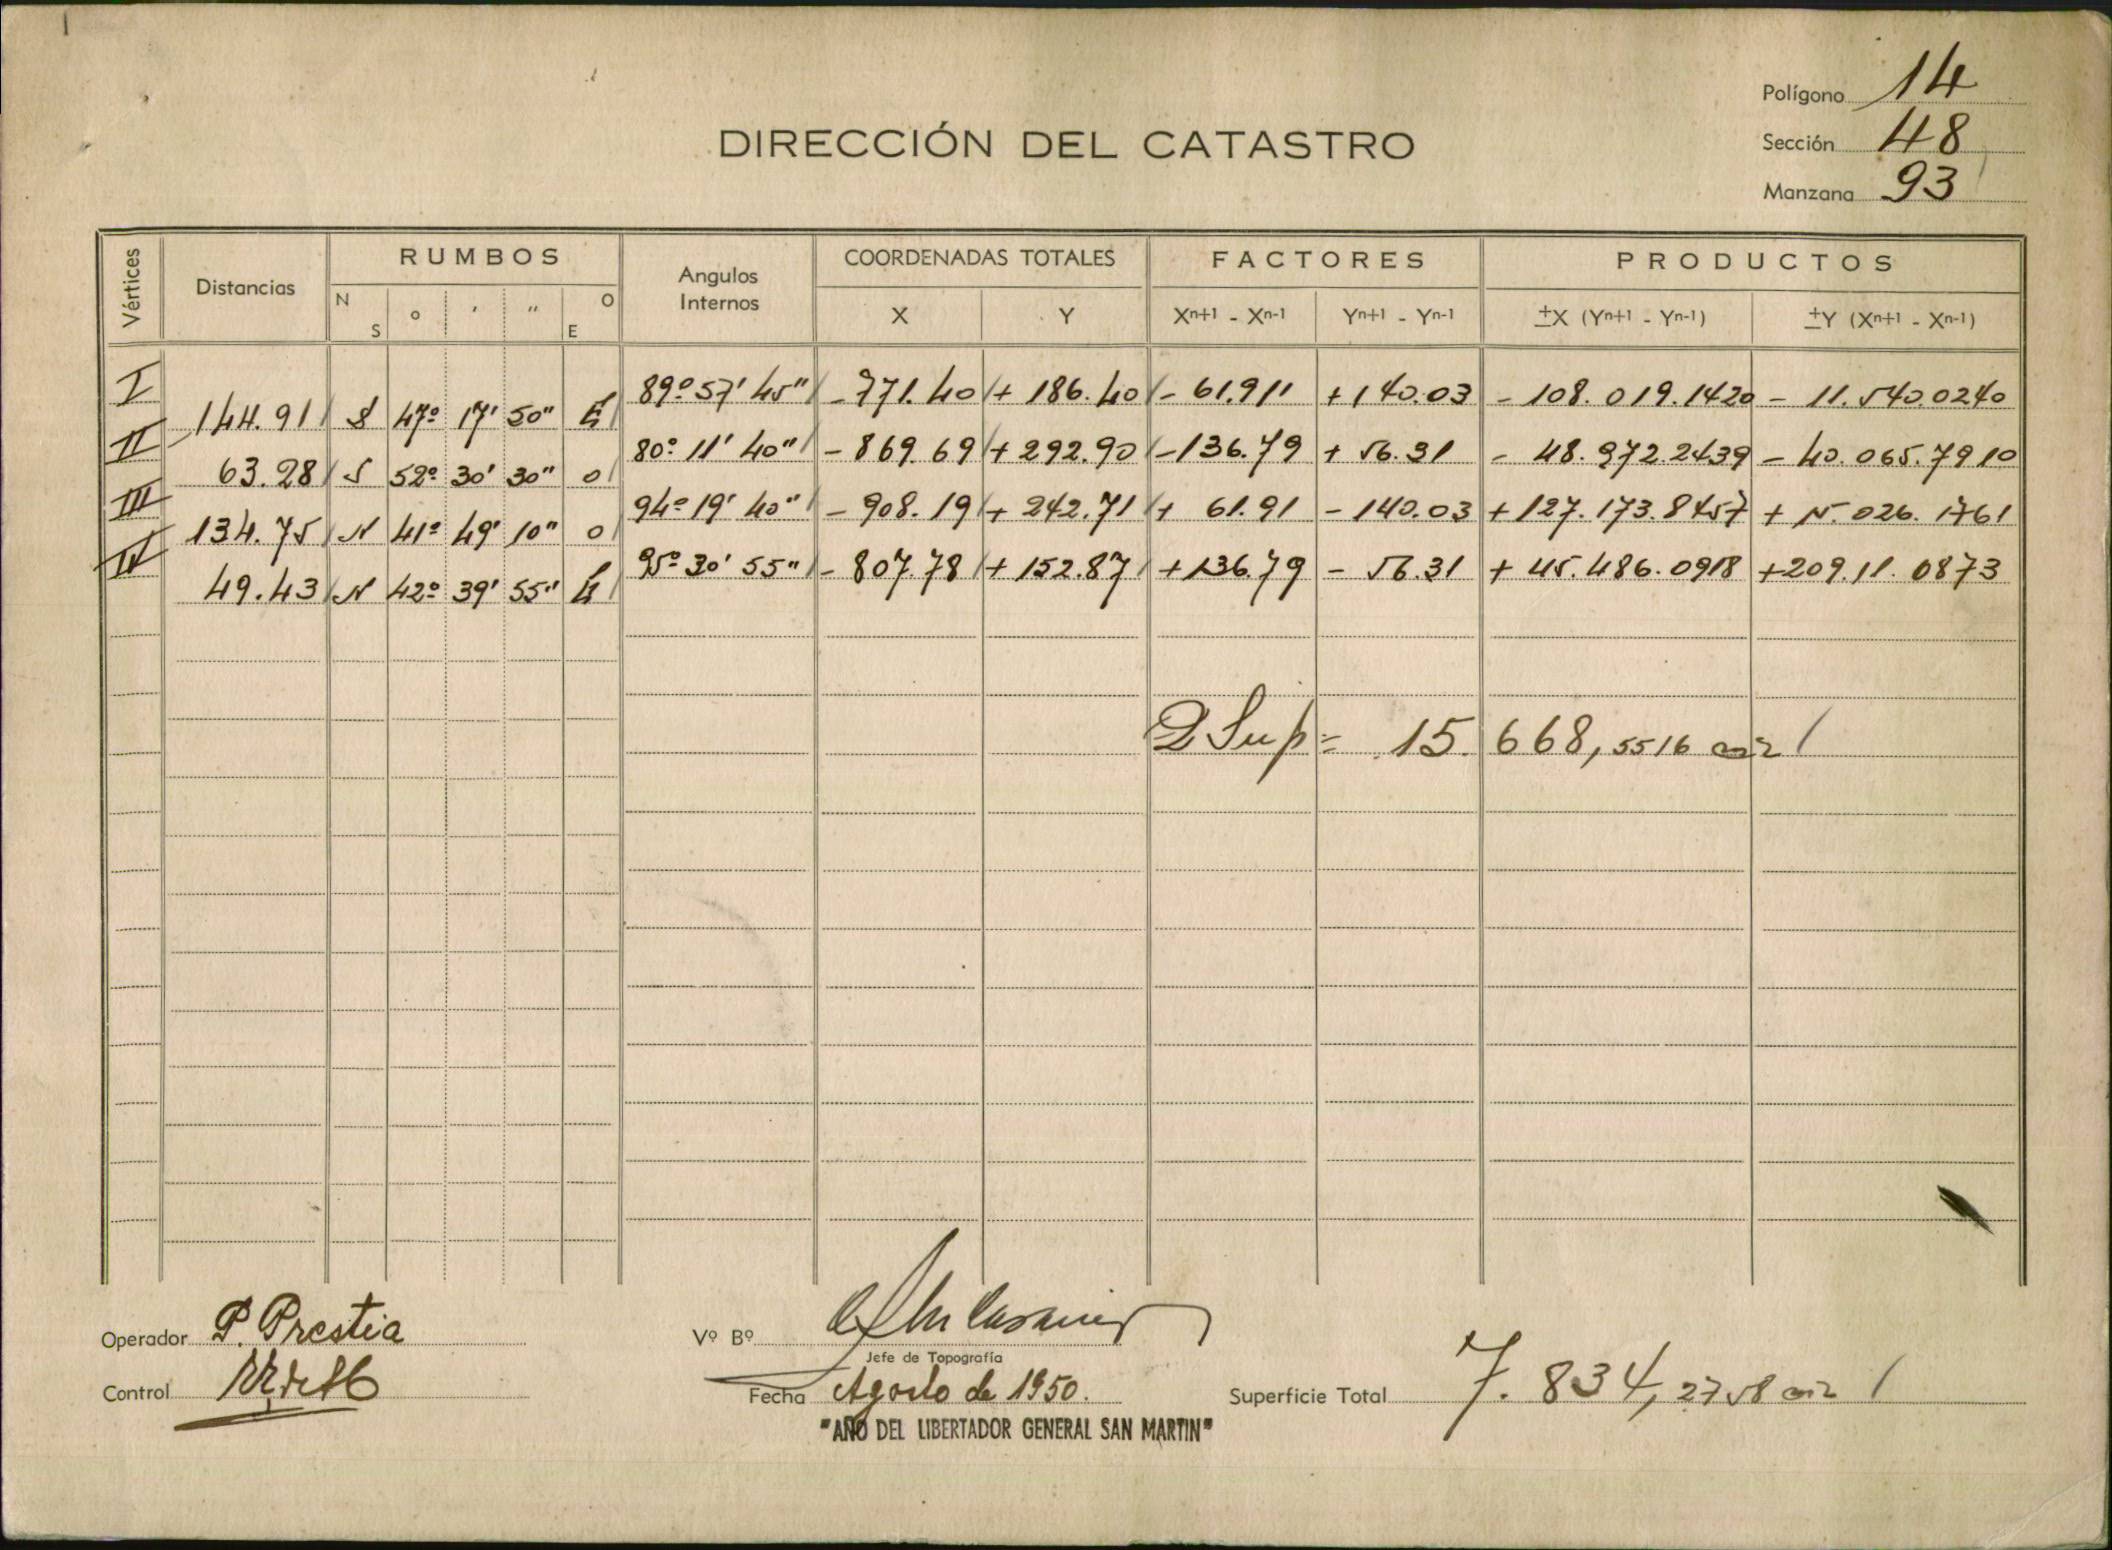 Polígono 14
DIRECCIÓN DEL CATASTRO
Sección 48
Manzana 93
Vértices Distancias RUMBOS Angulos Internos COORDENADAS TOTALES FACTORES PRODUCTOS
N S ° ' " O E X Y Xn+1 - Xn-1 Yn+1 - Yn-1 ±X (Yn+1 - Yn-1) ±Y (Xn+1 - Xn-1)
I 89º 57' 45" - 771.40 + 186.40 - 61.911 + 140.03 - 108.019.1420 - 11.540.0240
144.91 S 47º 17' 50" E
II 80º 11' 40" - 869.69 + 292.90 - 136.79 + 56.31 - 48.972.2439 - 40.065.7910
63.28 S 52º 30' 30" O
III 94º 19' 40" - 908.19 + 242.71 + 61.91 - 140.03 + 127.173.8457 + 15.026.1761
134.75 N 41º 49' 10" O
IV 95º 30' 55" - 807.78 + 152.87 + 136.79 - 56.31 + 45.486.0918 + 209.11.0873
49.43 N 42º 39' 55" E
2 Sup = 15.668,5516 m2
Operador P. Prestia
Vº Bº
Jefe de Topografía
Control
Fecha Agosto de 1950.
Superficie Total 7.834,2758 m2
"AÑO DEL LIBERTADOR GENERAL SAN MARTIN"